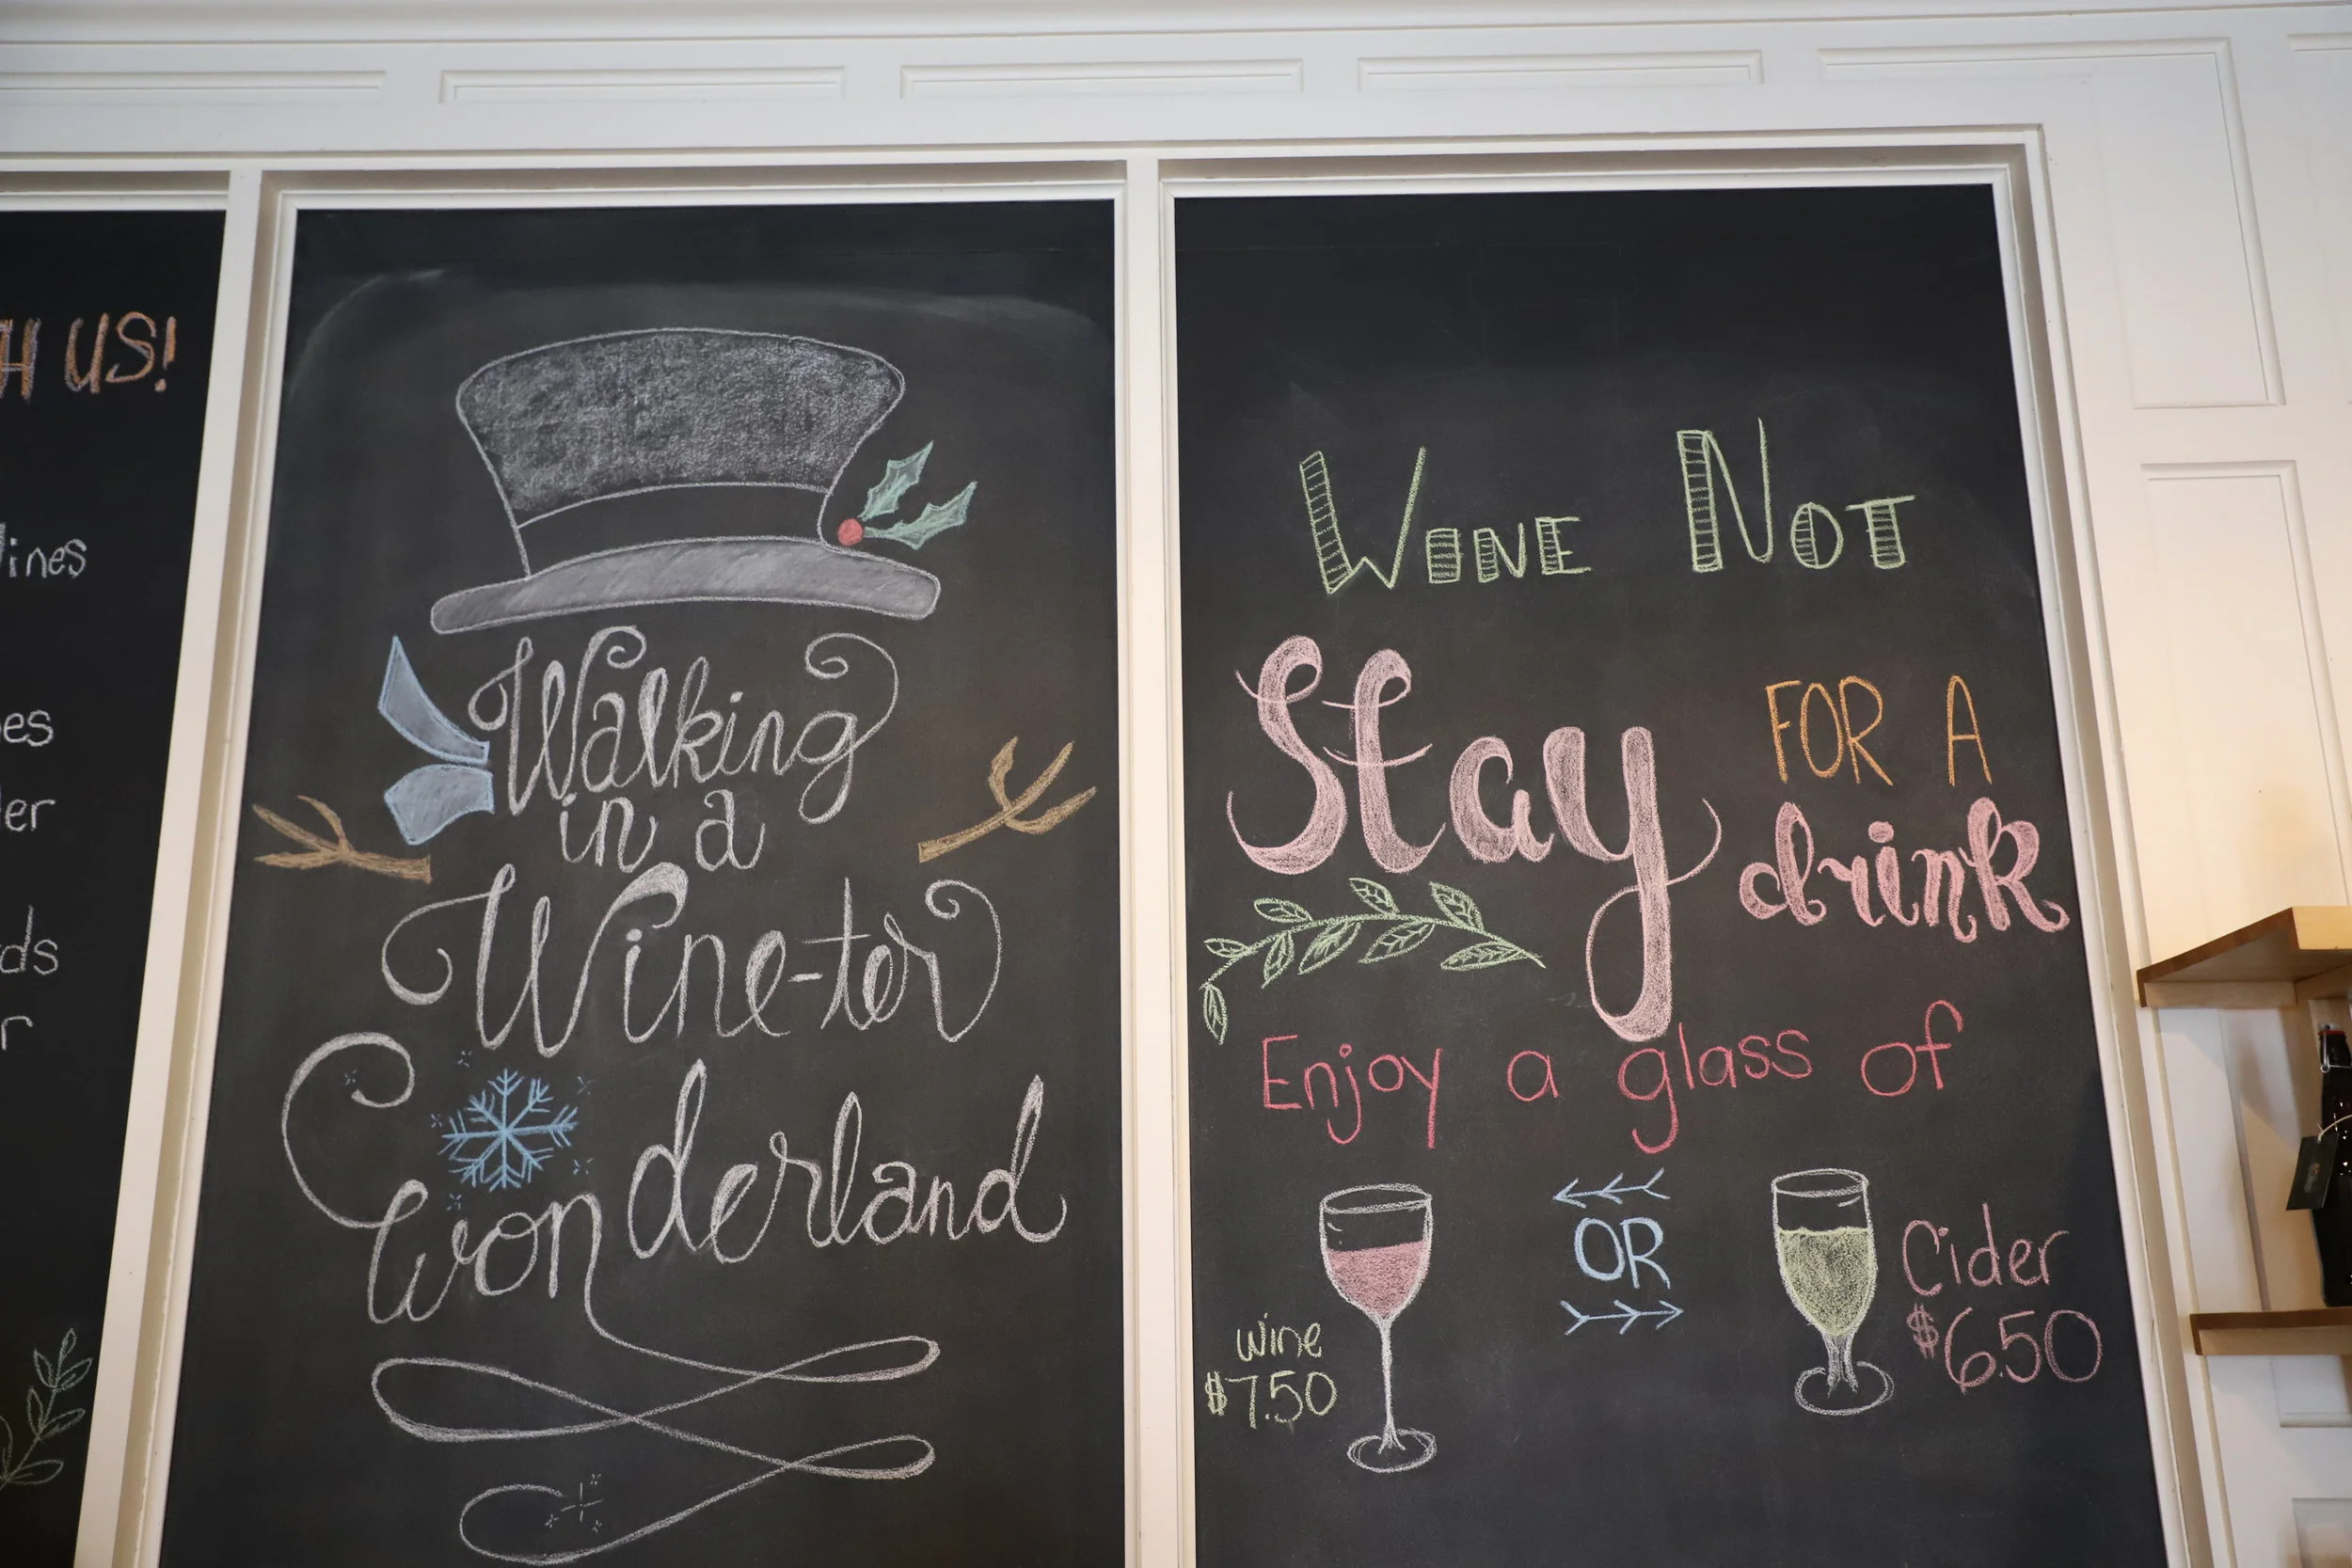 US!
Walking
in a
Wine-ter
Wonderland
WINE NOT
Stay FOR A
drink
Enjoy a glass of
OR
wine
$7.50
Cider
$6.50